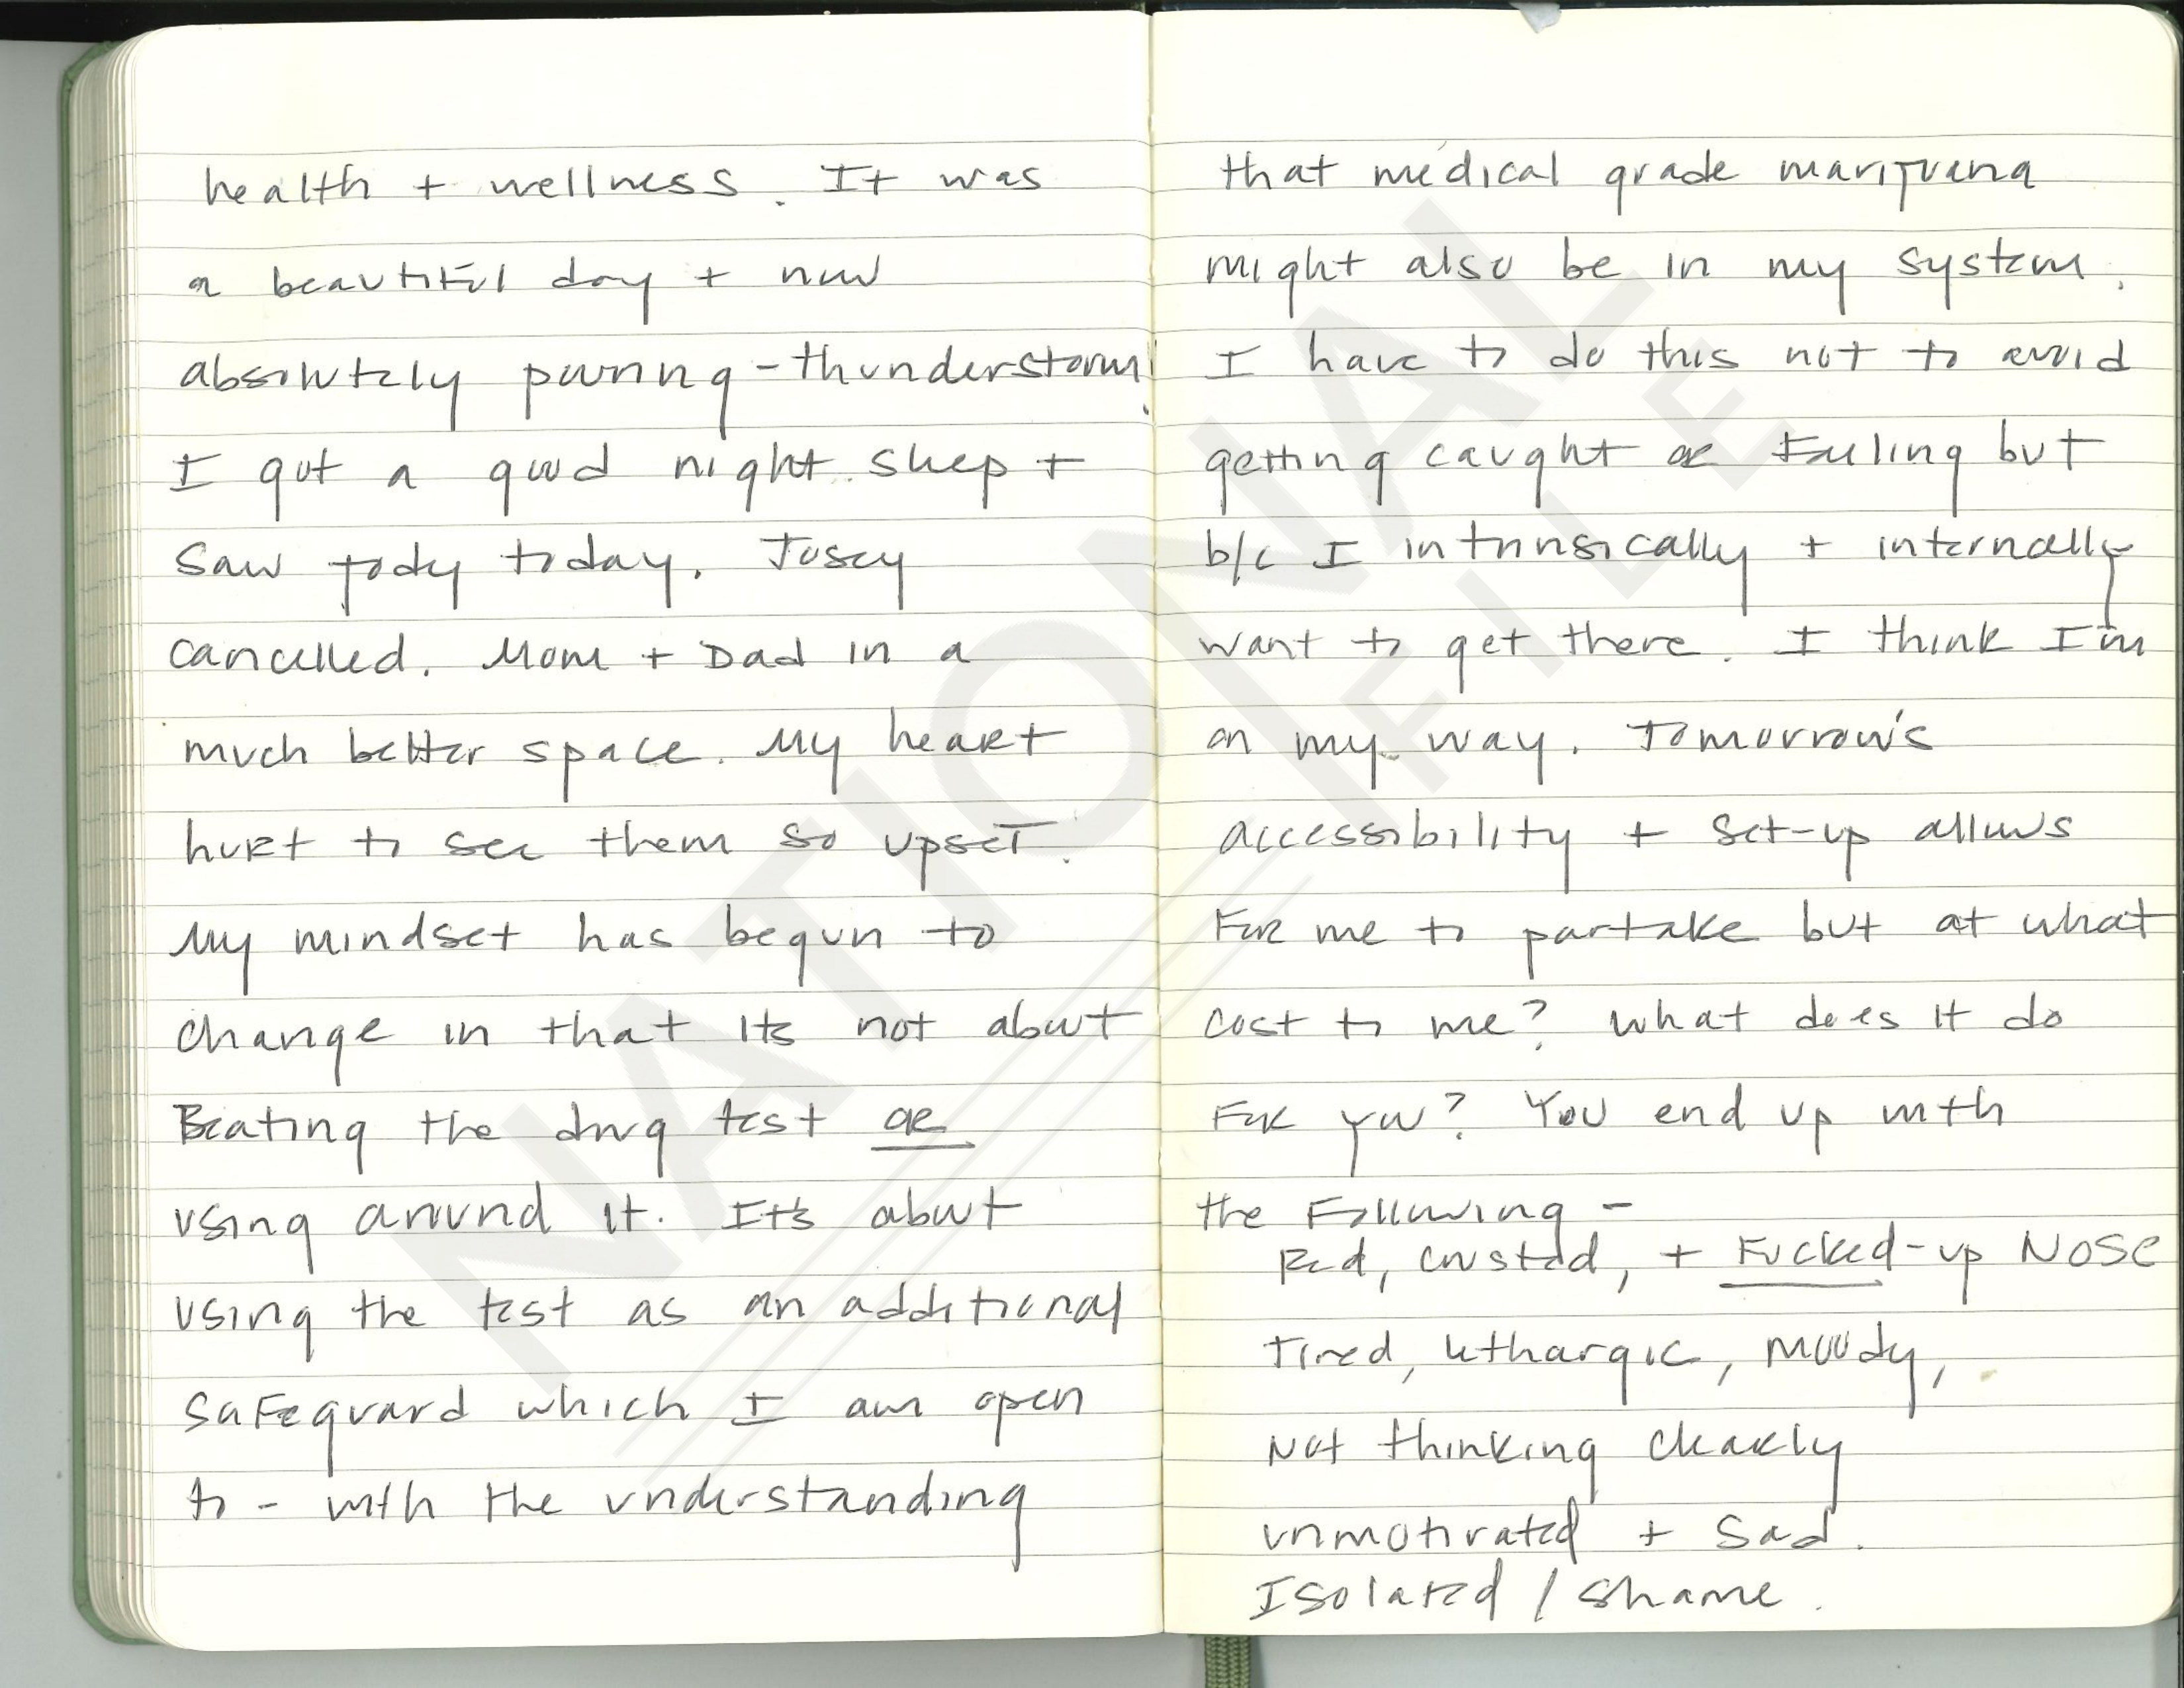 health + wellness. It was
a beautiful day + now
absolutely pouring - thunderstorm!
I got a good night sleep +
saw Jody today. Josey
cancelled. Mom + Dad in a
much better space. My heart
hurt to see them so upset.
My mindset has begun to
change in that its not about
Beating the drug test or
using around it. It's about
using the test as an additional
safeguard which I am open
to - with the understanding
that medical grade marijuana
might also be in my system.
I have to do this not to avoid
getting caught or Failing but
b/c I intrinsically + internally
want to get there. I think I'm
on my way. Tomorrow's
accessibility + set-up allows
For me to partake but at what
cost to me? What does it do
For you? You end up with
the Following -
Red, crusted, + Fucked-up NOSE
Tired, lethargic, moody,
Not thinking clearly
unmotivated + sad.
Isolated / shame.
NATIONAL
FILE